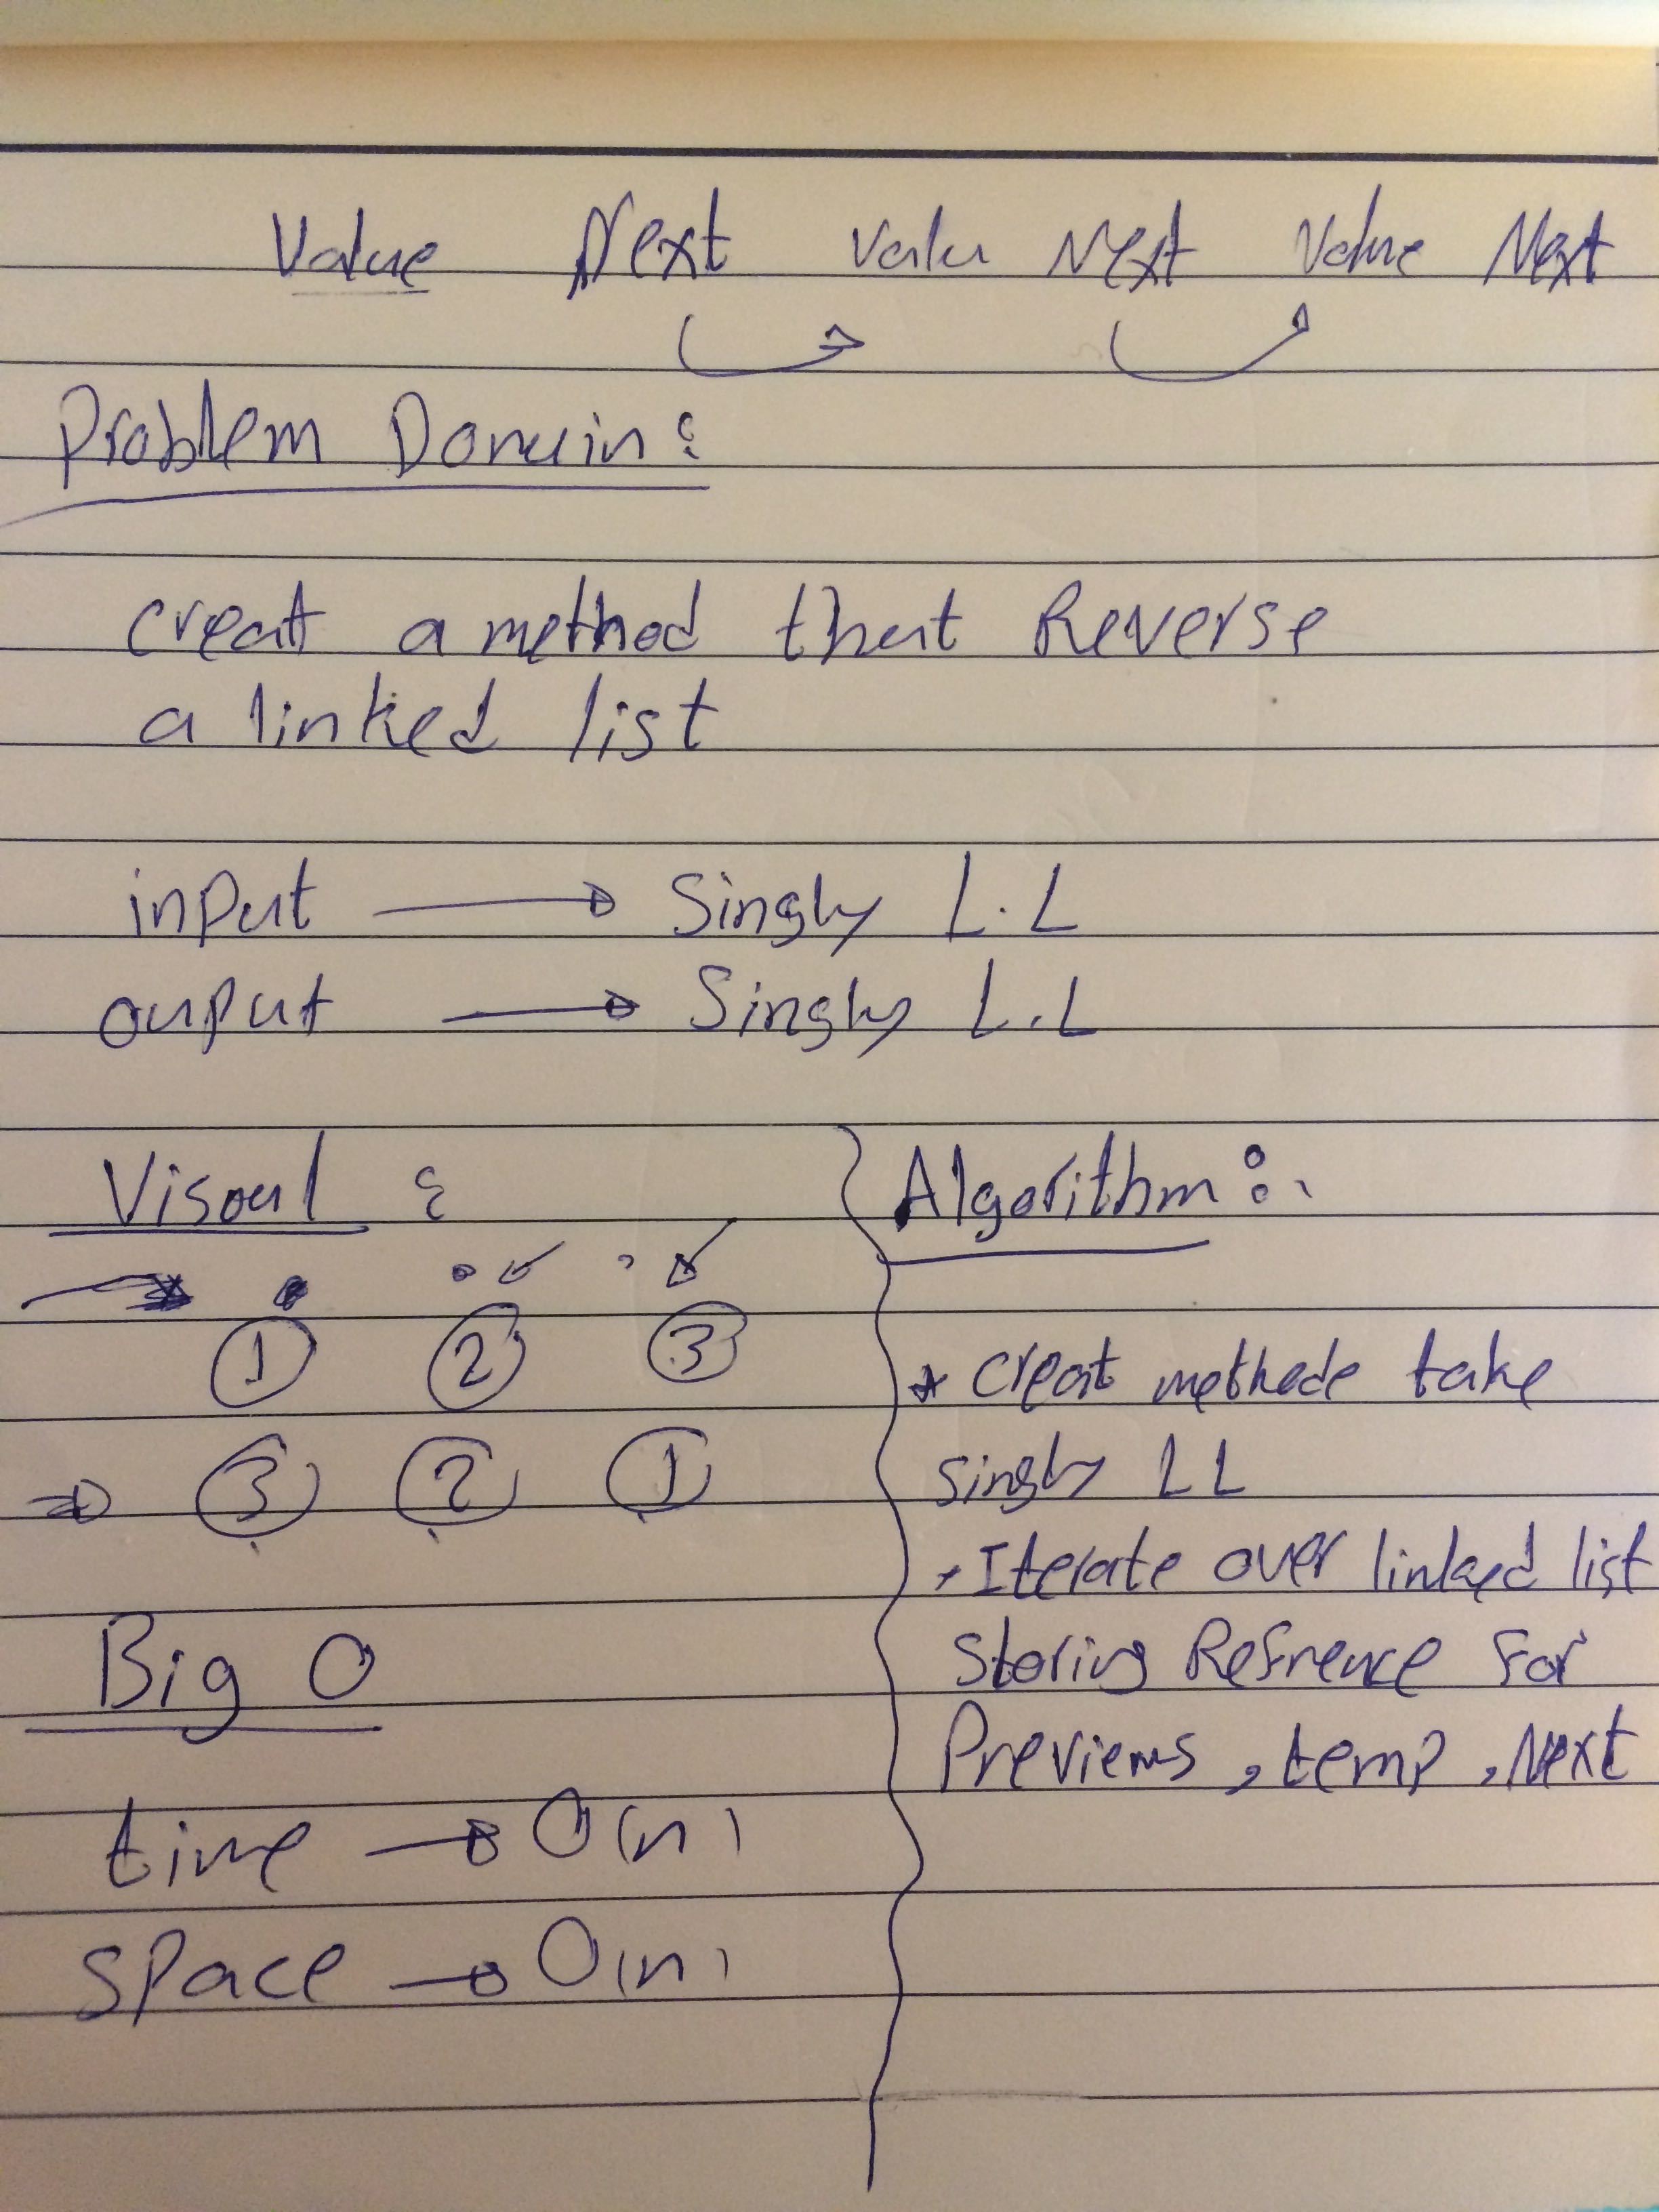 Value Next Value Next Value Next
Problem Domain:
creat a method that Reverse
a linked list
input → Singly L.L
ouput → Singly L.L
Visoul :
1 2 3
⇒ 3 2 1
Big O
time → O(n)
space → O(n)
Algorithm :
* Creat methode take
singly LL
* Iterate over linked list
storing Refrence for
Previews, temp, Next